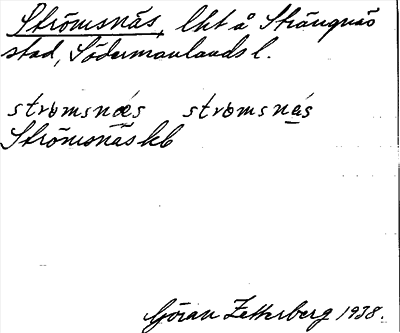 Strömsnäs, lht å Strängnäs
stad, Södermanlands l.
strømsnǽs strømsnás
Strömsnäs kb
Göran Zetterberg 1938.